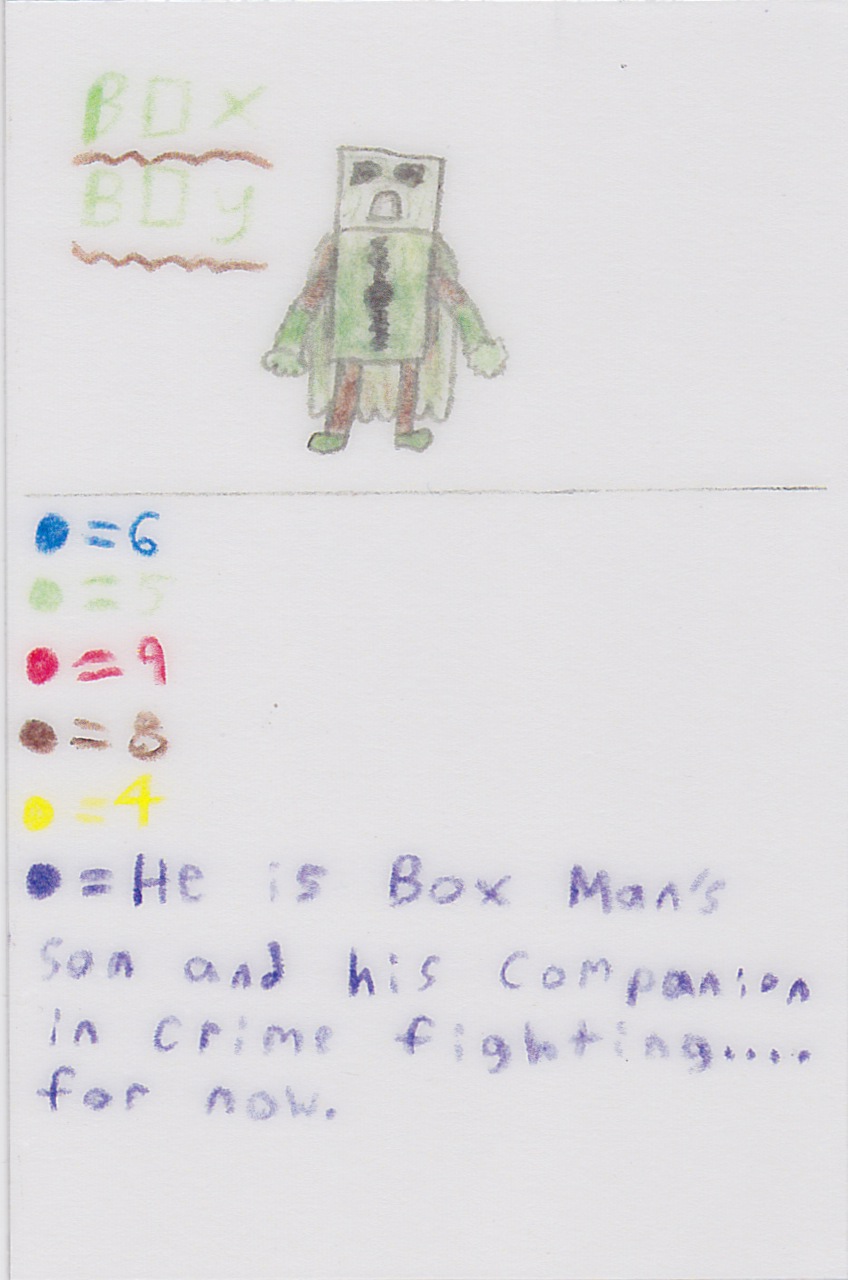 BOX
BOy
= 6
= 5
= 9
= 8
= 4
= He is Box Man's
son and his companion
in crime fighting....
for now.